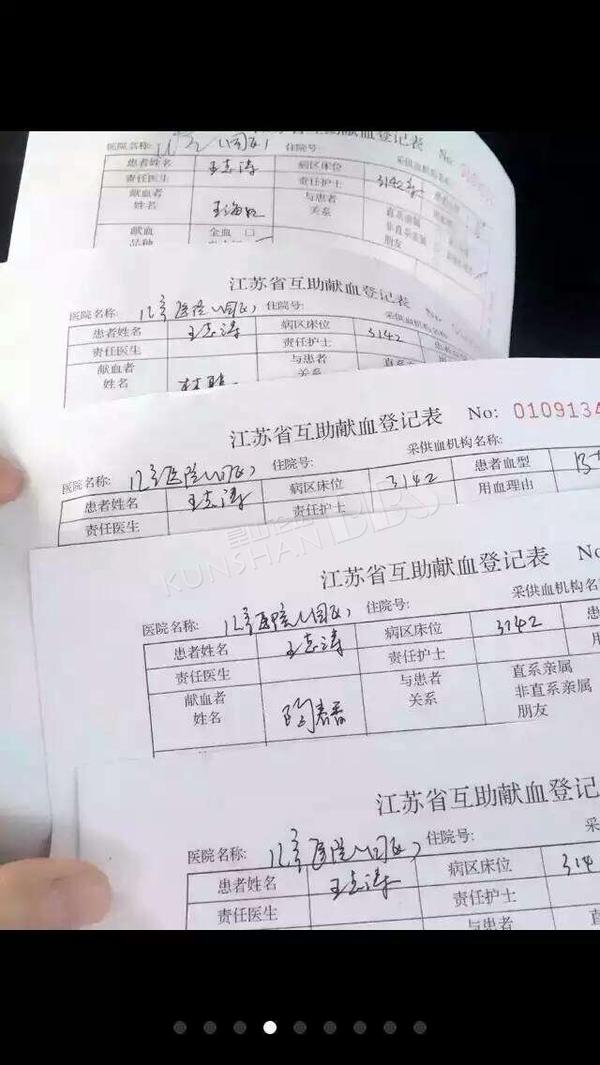 江苏省互助献血登记表
医院名称: 住院号: 采供血机构名称:
No:
患者姓名 王志涛 病区床位 3142
责任医生 责任护士
献血者 与患者 直系亲属
姓名 关系 非直系亲属
朋友
献血 全血 口
品种
江苏省互助献血登记表
医院名称: 儿童医院(园区) 住院号: 采供血机构名称:
患者姓名 王志涛 病区床位 3142
责任医生 责任护士
献血者 与患者 直系亲属
姓名 关系
江苏省互助献血登记表 No: 0109134
医院名称: 儿童医院(园区) 住院号: 采供血机构名称:
患者姓名 王志涛 病区床位 3142 患者血型
责任医生 责任护士 用血理由
KUNSHAN BBS
江苏省互助献血登记表 No
医院名称: 儿童医院(园区) 住院号: 采供血机构名
患者姓名 王志涛 病区床位 3142
责任医生 责任护士
献血者 与患者 直系亲属
姓名 陶春香 关系 非直系亲属
朋友
江苏省互助献血登记
医院名称: 儿童医院(园区) 住院号: 采供
患者姓名 王志涛 病区床位 314
责任医生 责任护士
与患者